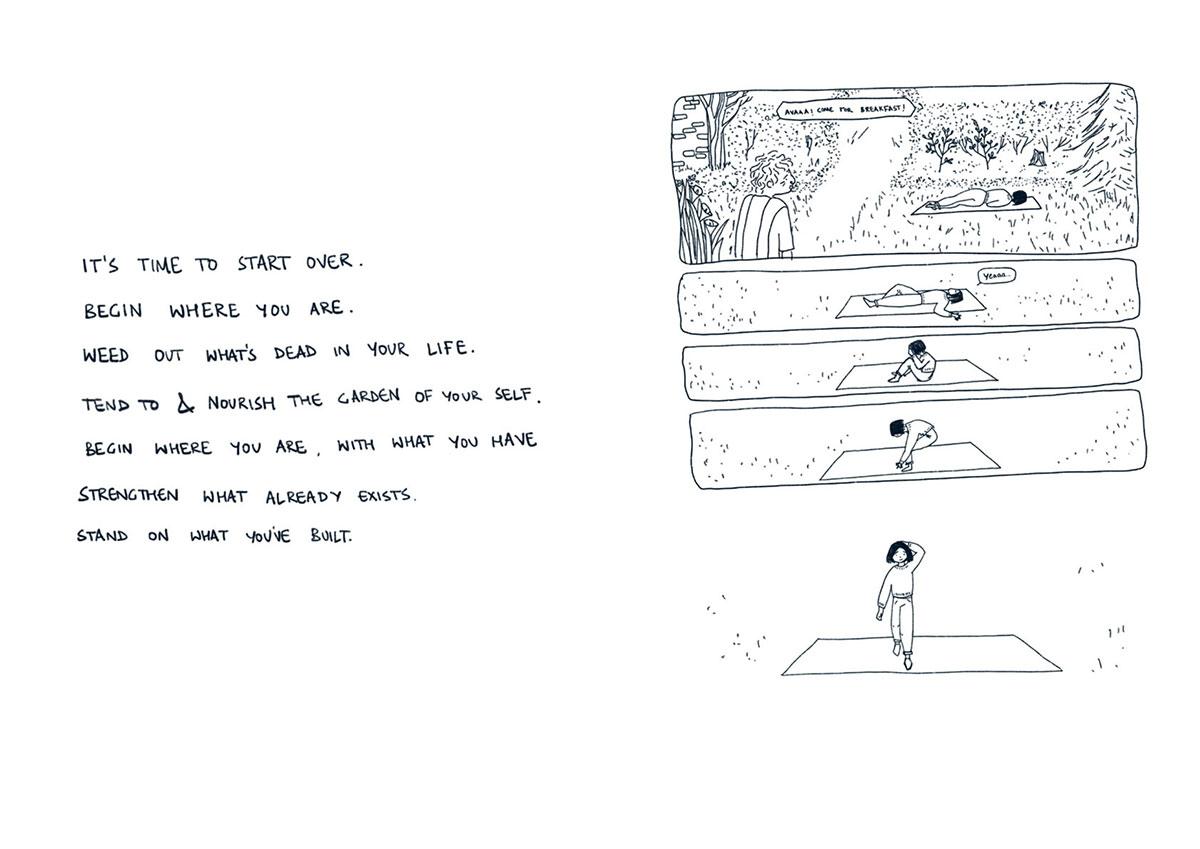 IT'S TIME TO START OVER.
BEGIN WHERE YOU ARE.
WEED OUT WHAT'S DEAD IN YOUR LIFE.
TEND TO & NOURISH THE GARDEN OF YOUR SELF.
BEGIN WHERE YOU ARE, WITH WHAT YOU HAVE
STRENGTHEN WHAT ALREADY EXISTS.
STAND ON WHAT YOU'VE BUILT.
AVAAA! COME FOR BREAKFAST!
Yeaaa..